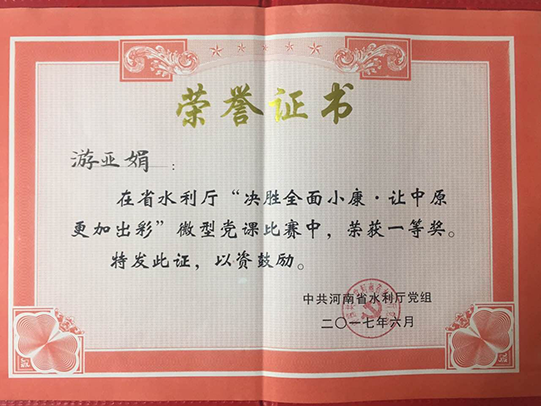 荣誉证书
游亚娟：
在省水利厅“决胜全面小康·让中原
更加出彩”微型党课比赛中，荣获一等奖。
特发此证，以资鼓励。
中共河南省水利厅党组
二〇一七年六月